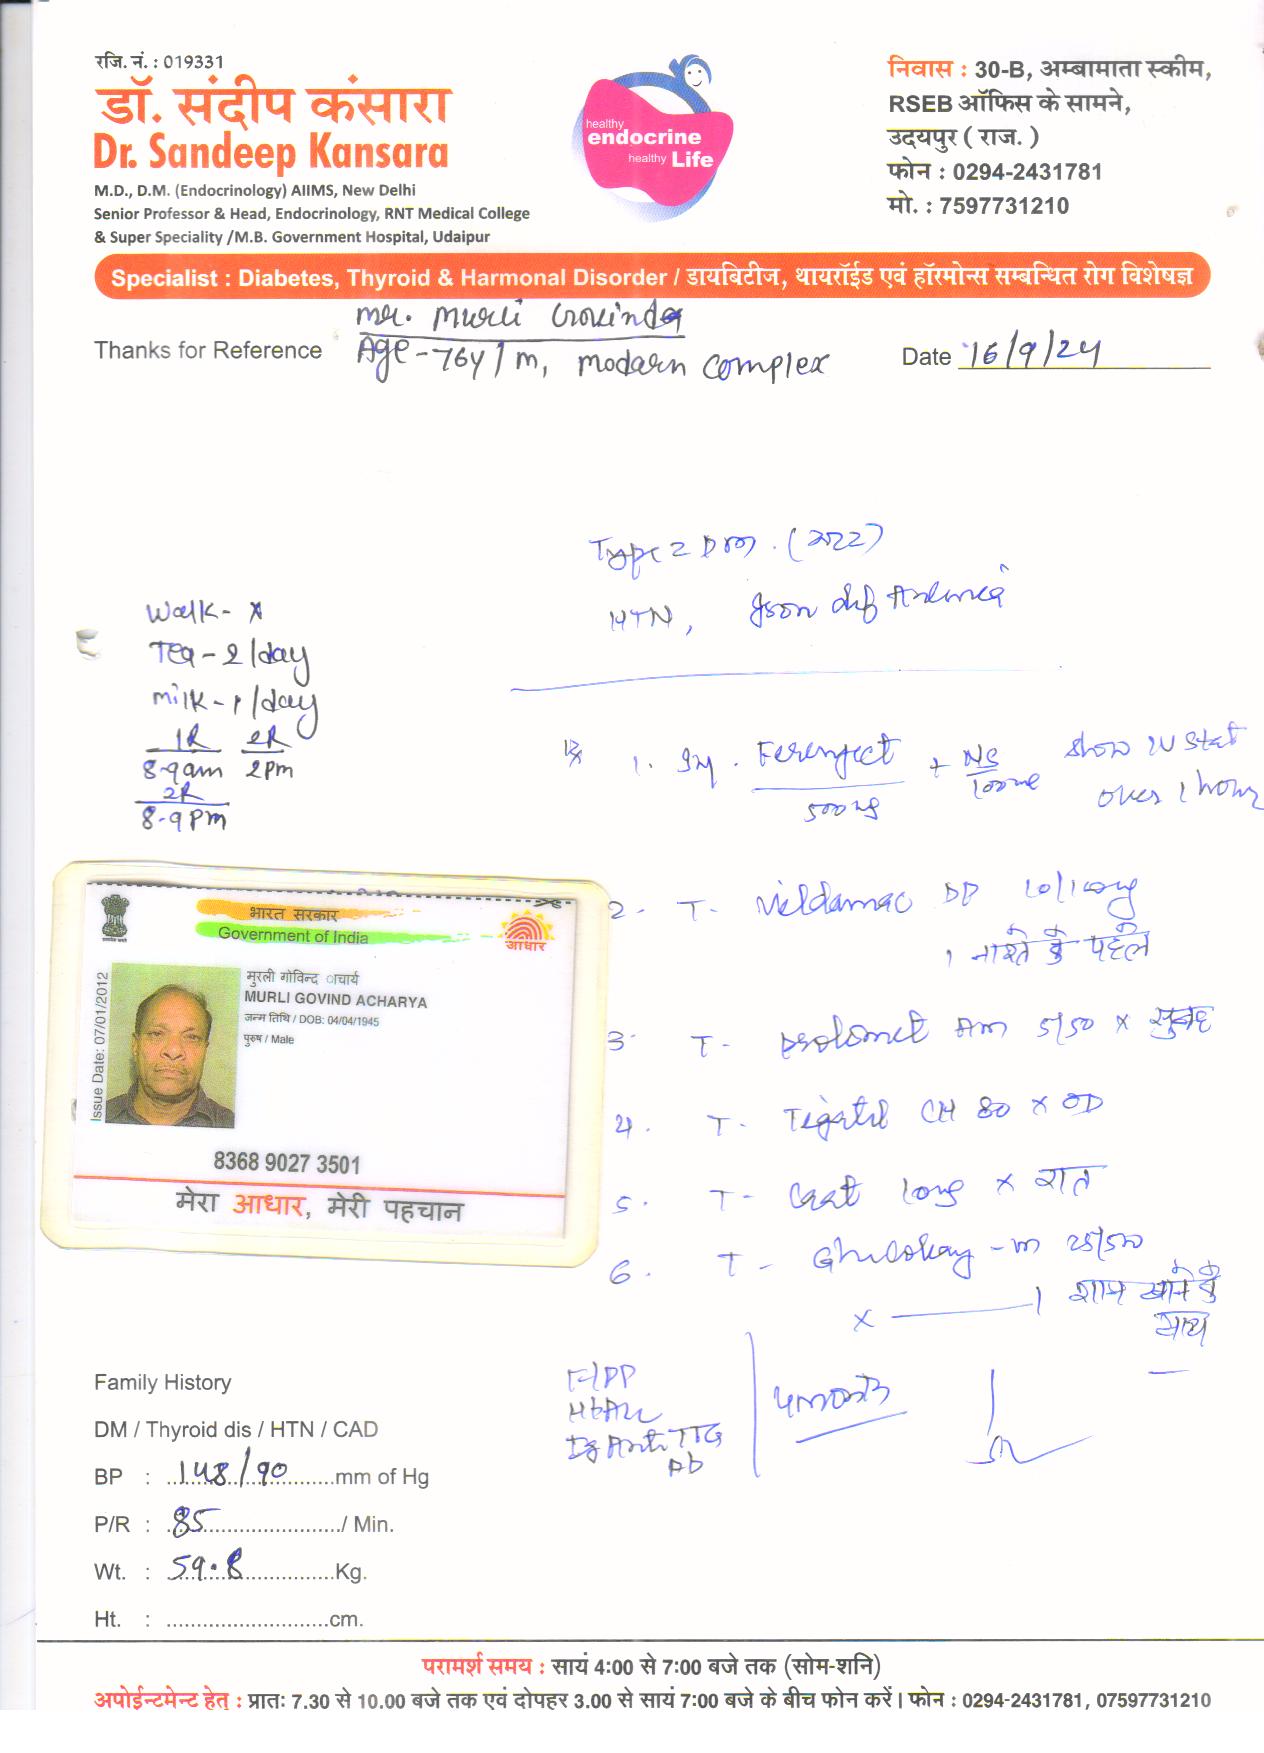 रजि. नं. : 019331
डॉ. संदीप कंसारा
Dr. Sandeep Kansara
M.D., D.M. (Endocrinology) AIIMS, New Delhi
Senior Professor & Head, Endocrinology, RNT Medical College
& Super Speciality /M.B. Government Hospital, Udaipur
healthy
endocrine
healthy Life
निवास : 30-B, अम्बामाता स्कीम,
RSEB ऑफिस के सामने,
उदयपुर ( राज. )
फोन : 0294-2431781
मो. : 7597731210
Specialist : Diabetes, Thyroid & Harmonal Disorder / डायबिटीज, थायरॉईड एवं हॉरमोन्स सम्बन्धित रोग विशेषज्ञ
Mr. Murli Govinda
Thanks for Reference Age-76y/m, modarn complex
Date 16/9/24
Type 2 DM. (2022)
HTN, Iron def Anemia
Walk- x
Tea-2/day
milk-1/day
1R 2R
8-9am 2pm
2R
8-9pm
Rx 1. Inj. + NS slow IV stat
500mg 100ml over 1 hour
2- T- Vildamac DP 10/100mg
1 नाश्ते के पहले
3- T- AM 5/50 x सुबह
4. T- CH 80 x OD
5. T- 10mg x रात
6. T- -M 25/500
x 1 शाम खाने के
साथ
F/PP
HbA1c
Ig Anti TTG
Ab
4 months
भारत सरकार
Government of India
आधार
Issue Date: 07/01/2012
मुरली गोविन्द ाचार्य
MURLI GOVIND ACHARYA
जन्म तिथि / DOB: 04/04/1945
पुरुष / Male
8368 9027 3501
मेरा आधार, मेरी पहचान
Family History
DM / Thyroid dis / HTN / CAD
BP : 148/90 mm of Hg
P/R : 85 / Min.
Wt. : 59.8 Kg.
Ht. : cm.
परामर्श समय : सायं 4:00 से 7:00 बजे तक (सोम-शनि)
अपोईन्टमेन्ट हेतु : प्रातः 7.30 से 10.00 बजे तक एवं दोपहर 3.00 से सायं 7:00 बजे के बीच फोन करें। फोन : 0294-2431781, 07597731210